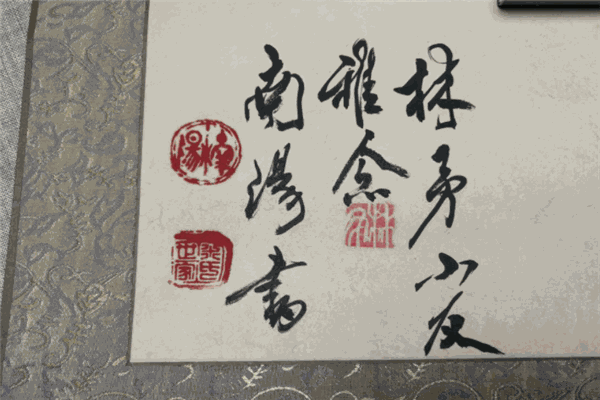 林勇小友
雅念
南湯書